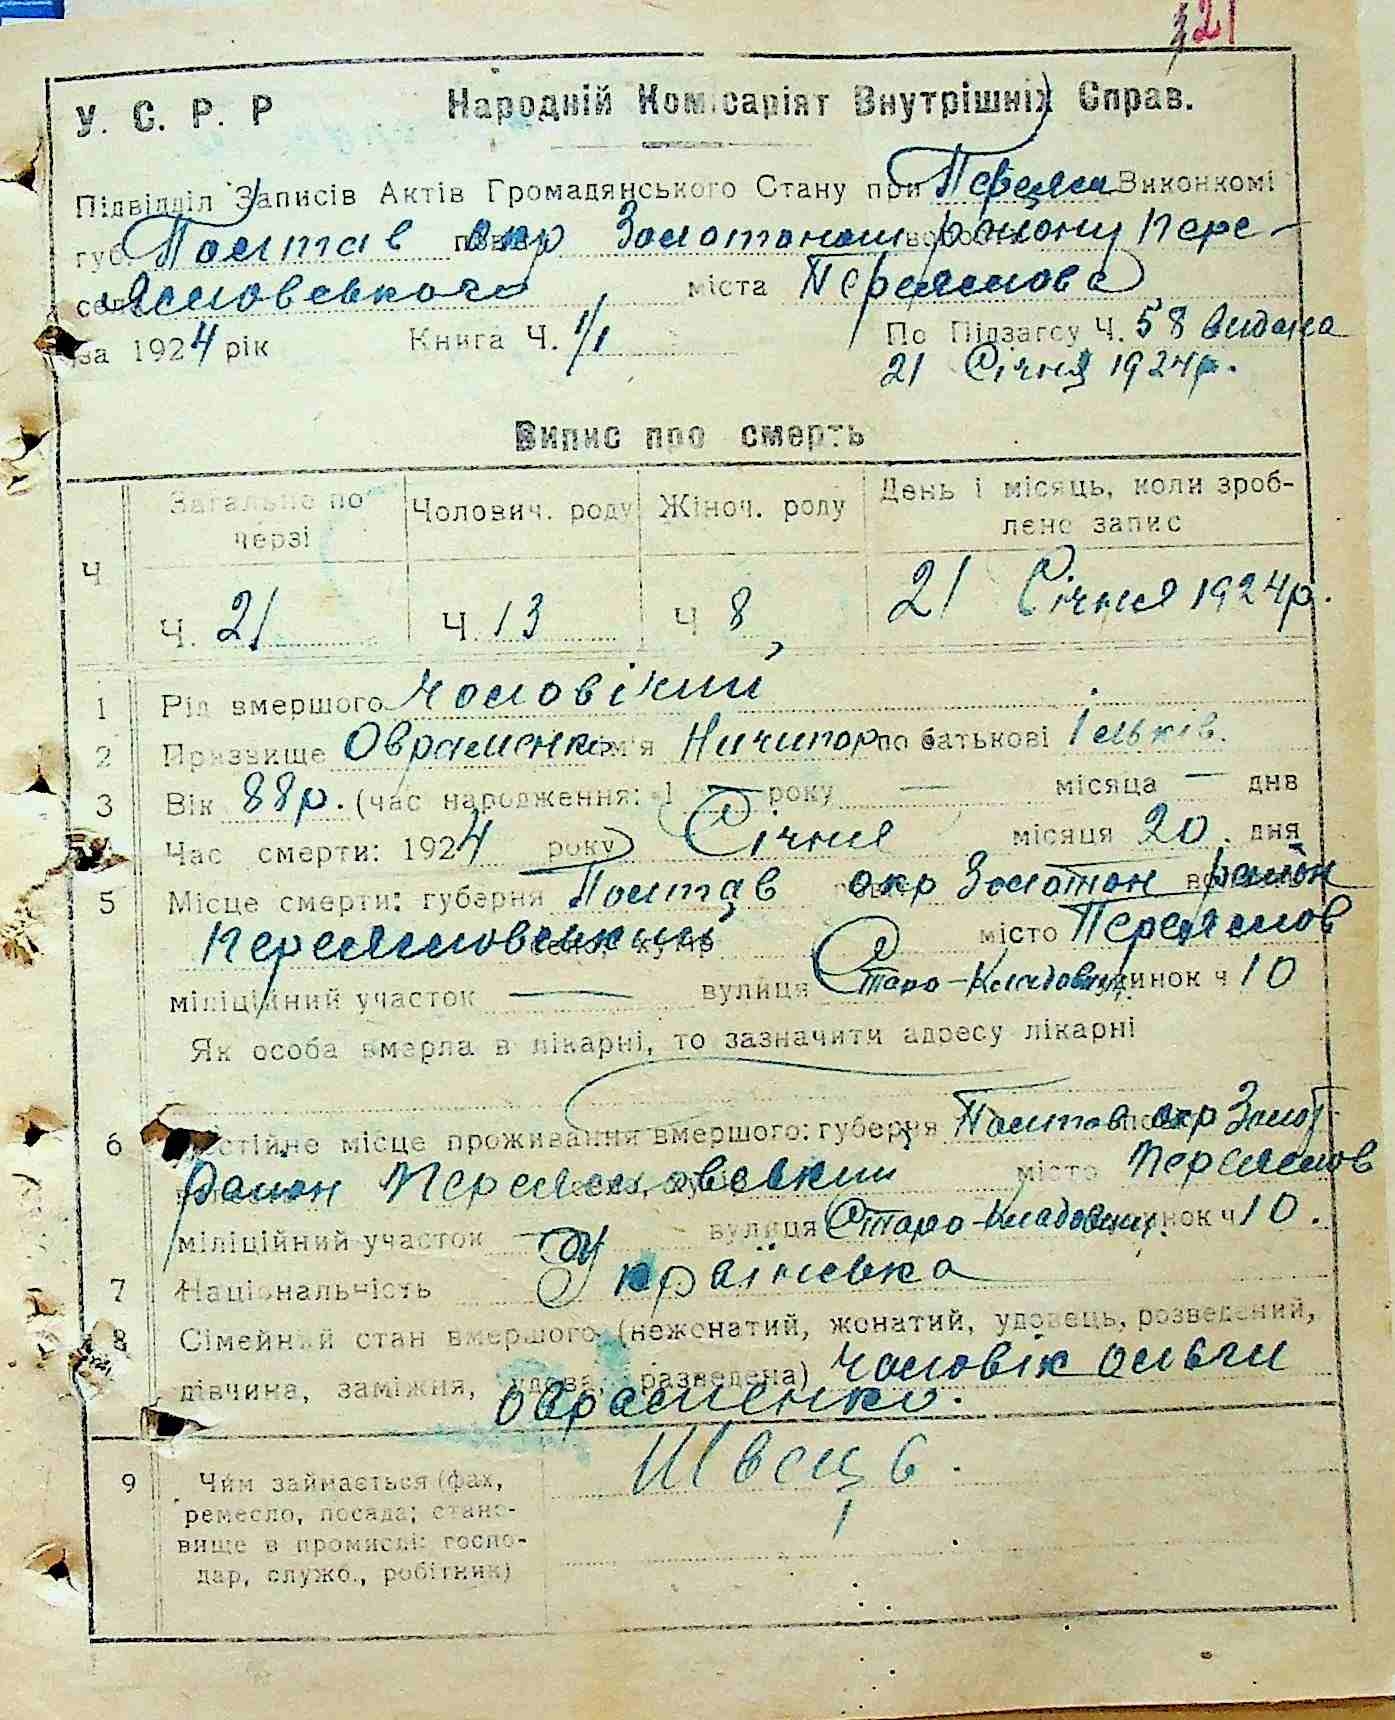 121
У. С. Р. Р Народній Комісаріят Внутрішніх Справ.
Підвідділ Записів Актів Громадянського Стану при Переясл Виконкомі
губ. Полтав окр Золотонош району Пере-
яславського міста Переяслова
за 1924 рік Книга Ч. 1/1 По Підзагсу Ч. 58 видана
21 Січня 1924р.
Випис про смерть
Загальне по черзі Чолович. роду Жіноч. роду День і місяць, коли зроб-
лено запис
Ч
Ч. 21 Ч. 13 Ч 8 21 Січня 1924р.
1 Рід вмершого чоловічий
2 Призвище Овраменко ім'я Ничипор по батькові Ільків.
3 Вік 88р. (час народження: 1 — року — місяца — днв
Час смерти: 1924 року Січня місяця 20 дня
5 Місце смерти: губерня Полтав окр Золотон район
Переясловський місто Переяслов
міліційний участок — вулиця Старо-Кладовищ. будинок ч 10
Як особа вмерла в лікарні, то зазначити адресу лікарні
6 Постійне місце проживання вмершого: губерня Полтав окр Золот
район Переясловський місто Переяслов
міліційний участок — вулиця Старо-Кладовищ. будинок ч 10.
7 Національність Українська
8 Сімейний стан вмершого (нежонатий, жонатий, удовець, розведений,
дівчина, заміжня, удова, разведена) чоловік Ольги
Овраменко.
9 Чим займається (фах, Швець.
ремесло, посада; стано-
вище в промислі: госпо-
дар, служб., робітник)